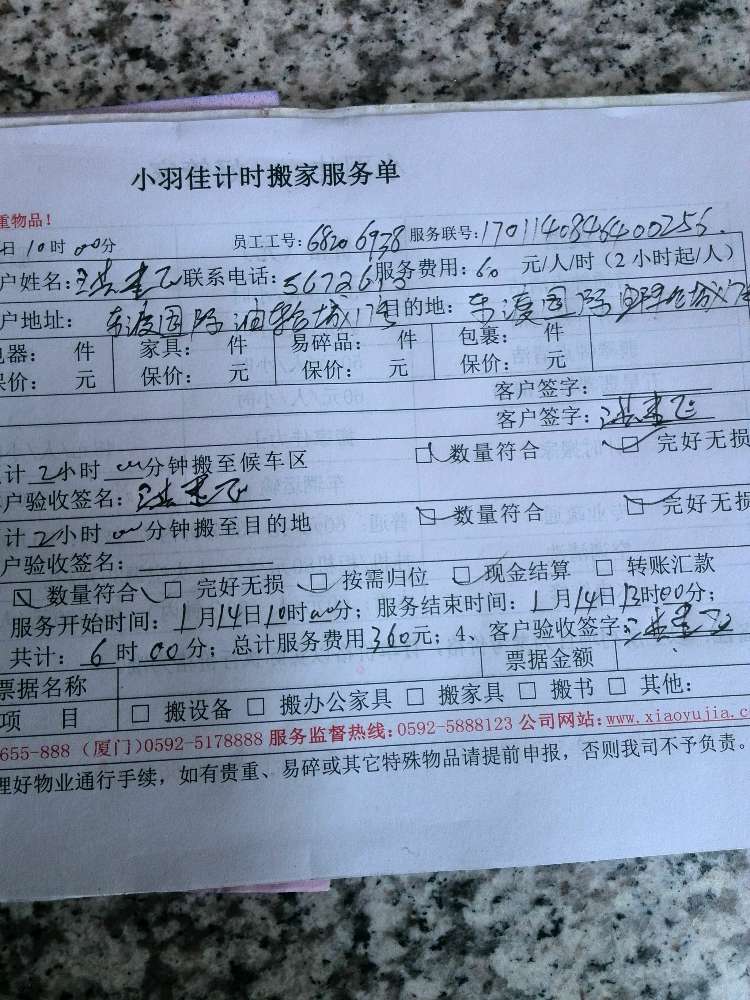 小羽佳计时搬家服务单
重物品！
日10时00分 员工工号：6820 6938 服务联号：1701140846400256
户姓名：洪 联系电话：567261 服务费用：60 元/人/时（2小时起/人）
户地址：东渡国际油轮城X7号 目的地：东渡国际
电器： 件 家具： 件 易碎品： 件 包裹： 件
保价： 元 保价： 元 保价： 元 保价： 元
客户签字：
客户签字：洪
计2小时00分钟搬至候车区 □数量符合 □ 完好无损
户验收签名：洪
计2小时00分钟搬至目的地 □数量符合 □ 完好无损
户验收签名：
□ 数量符合 □ 完好无损 □ 按需归位 □ 现金结算 □ 转账汇款
服务开始时间：1月14日10时00分；服务结束时间：1月14日13时00分；
共计：6时00分；总计服务费用360元；4、客户验收签字：洪
票据名称 票据金额
项 目 □ 搬设备 □ 搬办公家具 □ 搬家具 □ 搬书 □ 其他：
655-888（厦门）0592-5178888 服务监督热线：0592-5888123 公司网站：www.xiaoyujia.c
理好物业通行手续，如有贵重、易碎或其它特殊物品请提前申报，否则我司不予负责。